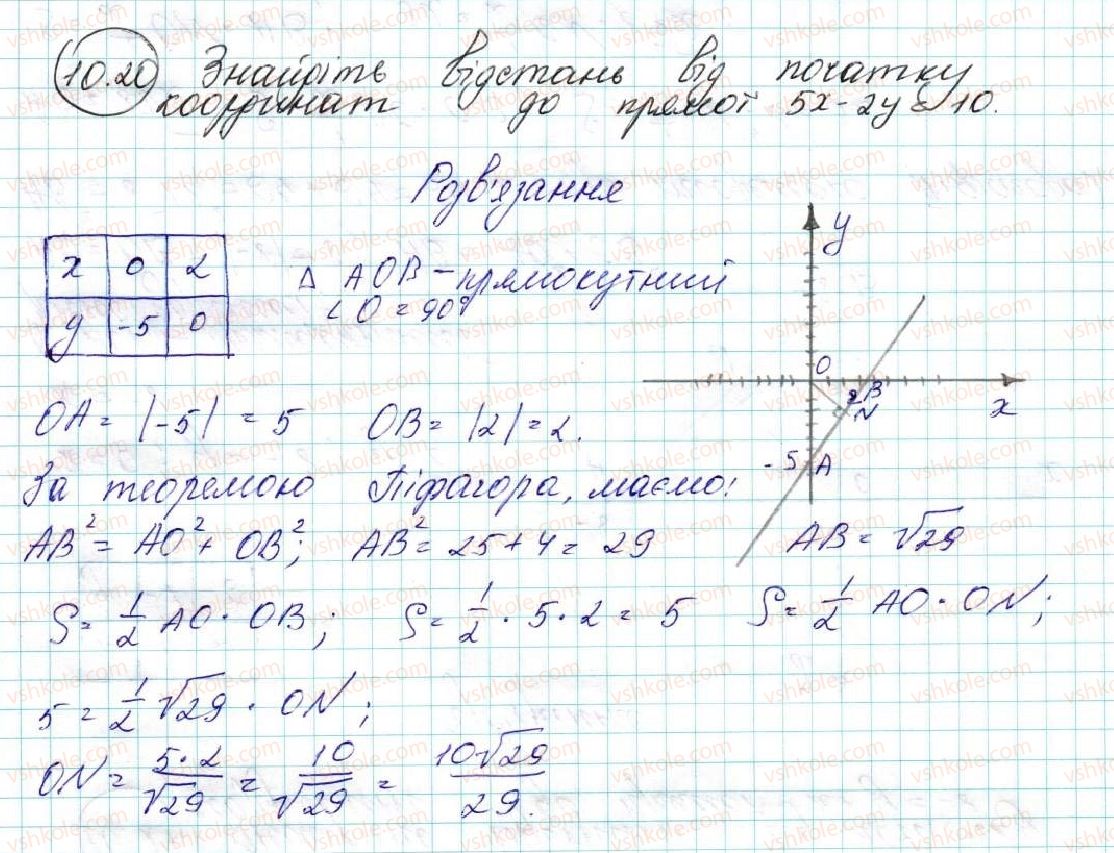 10.20 Знайдіть відстань від початку
координат до прямої 5x-2y=10.
Розв'язання
x 0 2
y -5 0
Δ AOB - прямокутний
∠O = 90°
y
O
2 B
N
x
-5 A
OA = |-5| = 5 OB = |2| = 2.
За теоремою Піфагора, маємо:
AB² = AO² + OB²; AB² = 25 + 4 = 29 AB = √29
S = 1/2 AO · OB; S = 1/2 · 5 · 2 = 5 S = 1/2 AO · ON;
5 = 1/2 √29 · ON;
ON = 5·2/√29 = 10/√29 = 10√29/29.